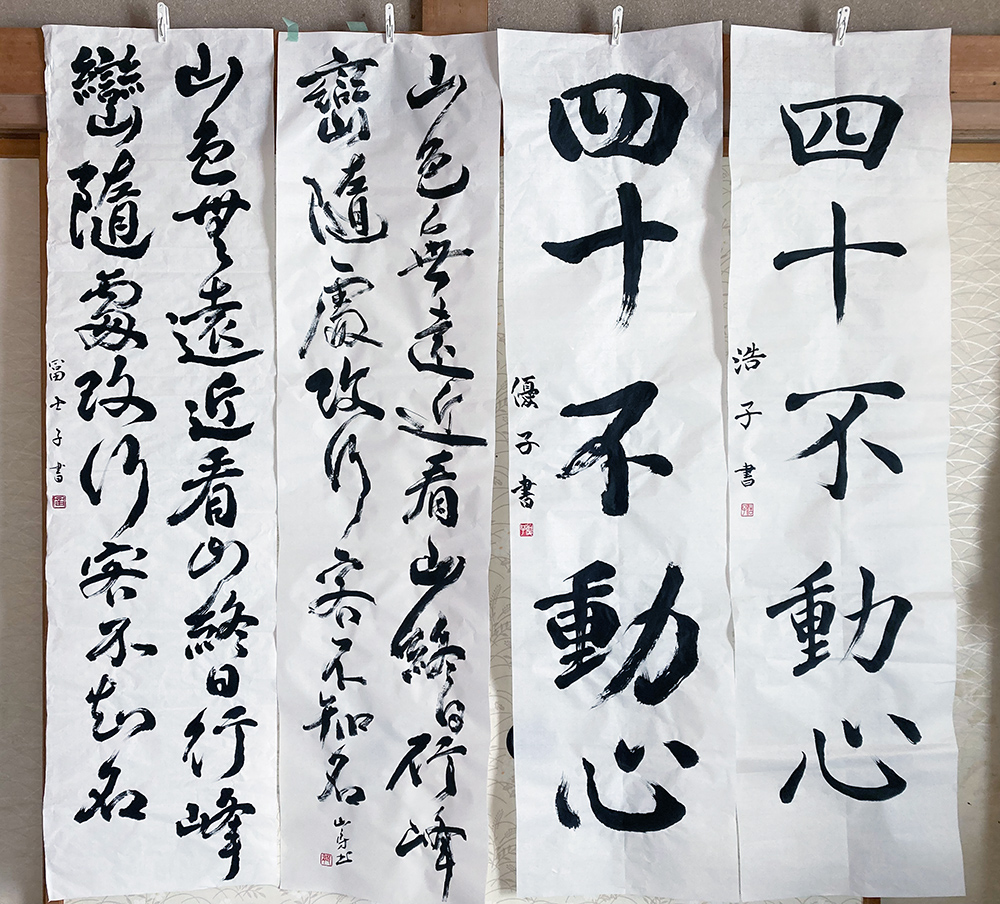 四十不動心
浩子書
四十不動心
優子書
山色無遠近看山終日行峰
巒隨處改行客不知名
山色無遠近看山終日行峰
巒隨處改行客不知名
冨士子書